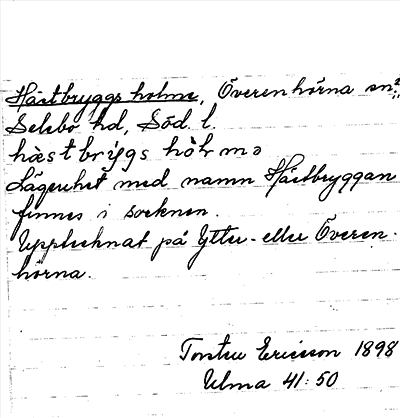 Hästbryggs holme, Överenhörna sn
Selebo hd, Söd. l.
hæstbrygs hòlmə
Lägenhet med namn Hästbryggan
finnes i socknen.
Upptecknat på Ytter- eller Överen-
hörna.
Torsten Ericsson 1898
Ulma 41:50